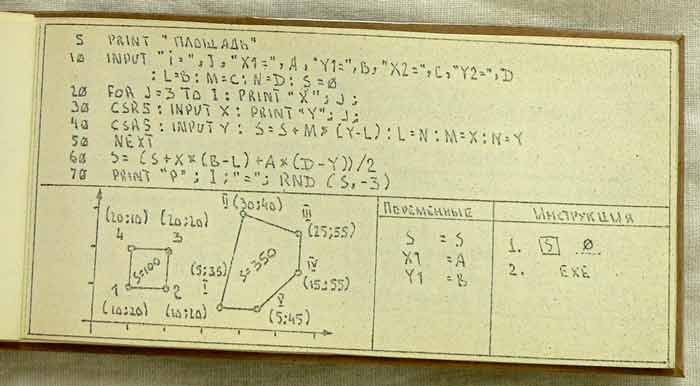 5 PRINT "ПЛОЩАДЬ"
10 INPUT "i=", I, "X1=", A, "Y1=", B, "X2=", C, "Y2=", D
: L=B: M=C: N=D: S=0
20 FOR J=3 TO I: PRINT "X"; J;
30 CSR5: INPUT X: PRINT "Y"; J;
40 CSR5: INPUT Y: S=S+M*(Y-L): L=N: M=X: N=Y
50 NEXT
60 S=(S+X*(B-L)+A*(D-Y))/2
70 PRINT "P"; I; "="; RND (S,-3)
(20;10) (20;20)
4 3
S=100
1 2
(10;20) (10;20)
II (30;40)
III
(25;55)
S=350
(5;35)
I
IV
(15;55)
V
(5;45)
ПЕРЕМЕННЫЕ
S = S
X1 = A
Y1 = B
ИНСТРУКЦИЯ
1. S 0
2. EXE